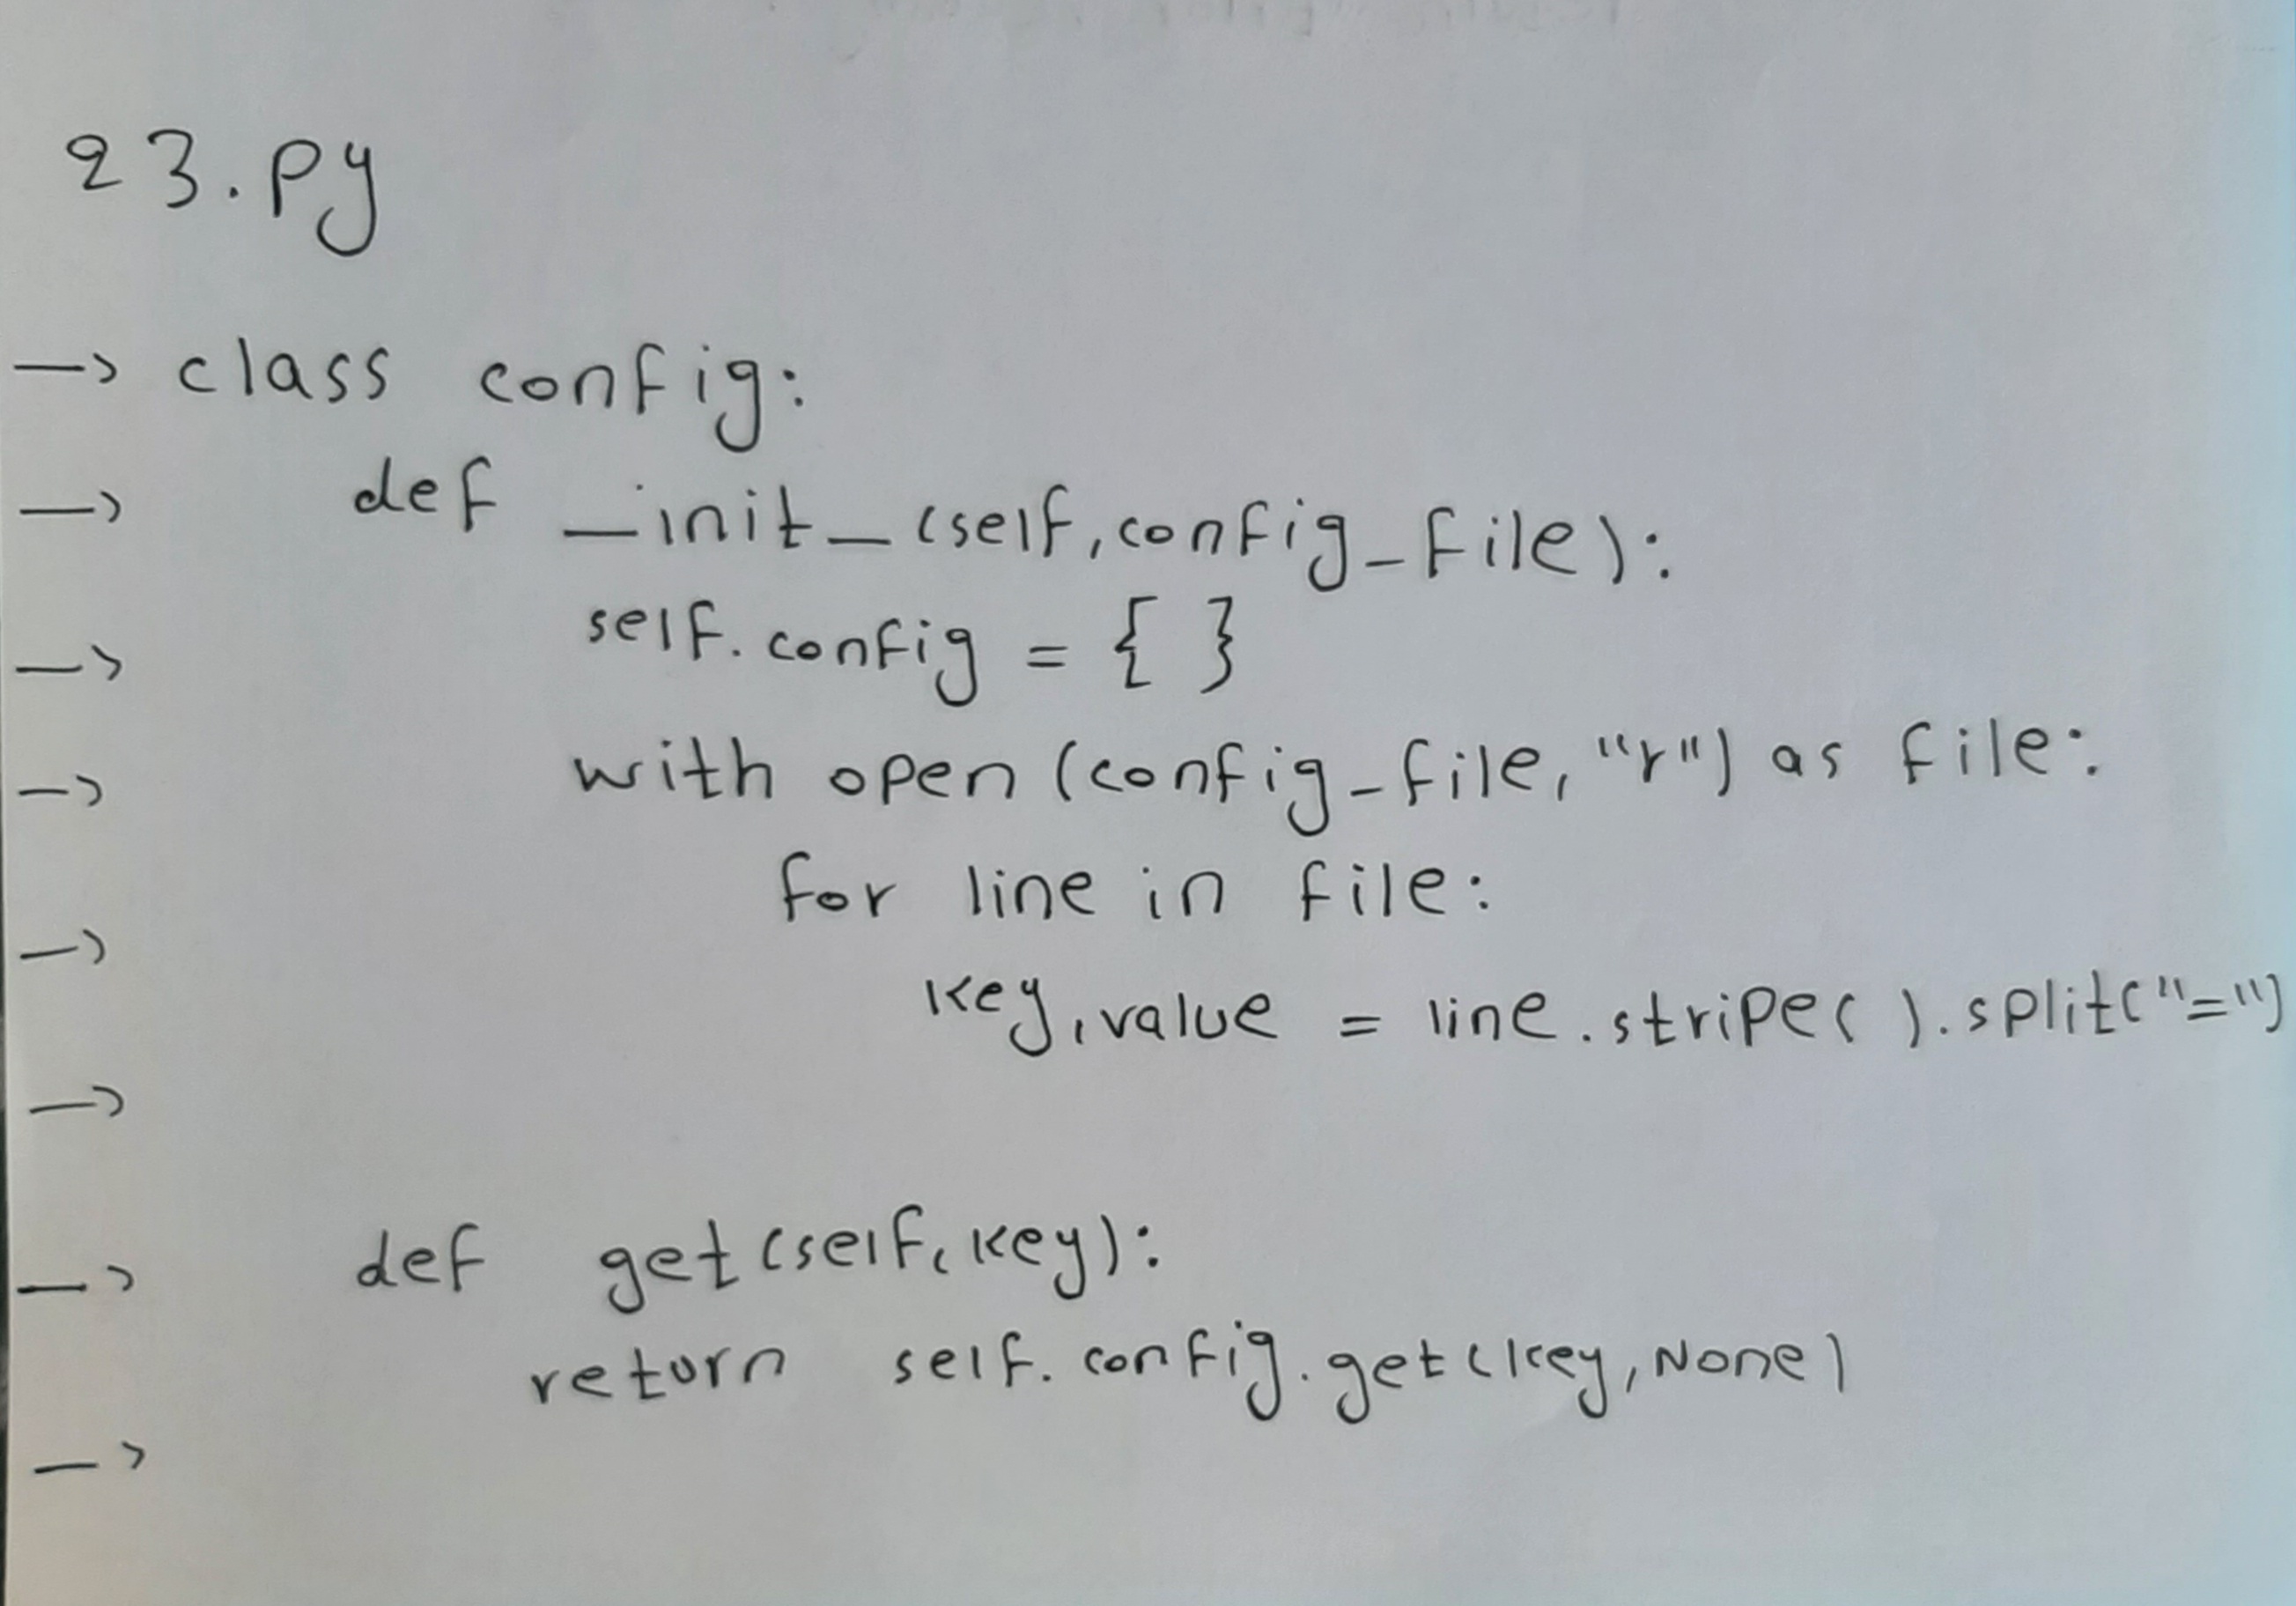 23.py
-> class config:
-> def _init_(self,config_file):
-> self.config = { }
-> with open (config_file, "r") as file:
for line in file:
-> key,value = line.stripe( ).split("=")
->
-> def get(self, key):
return self.config.get(key, None)
->